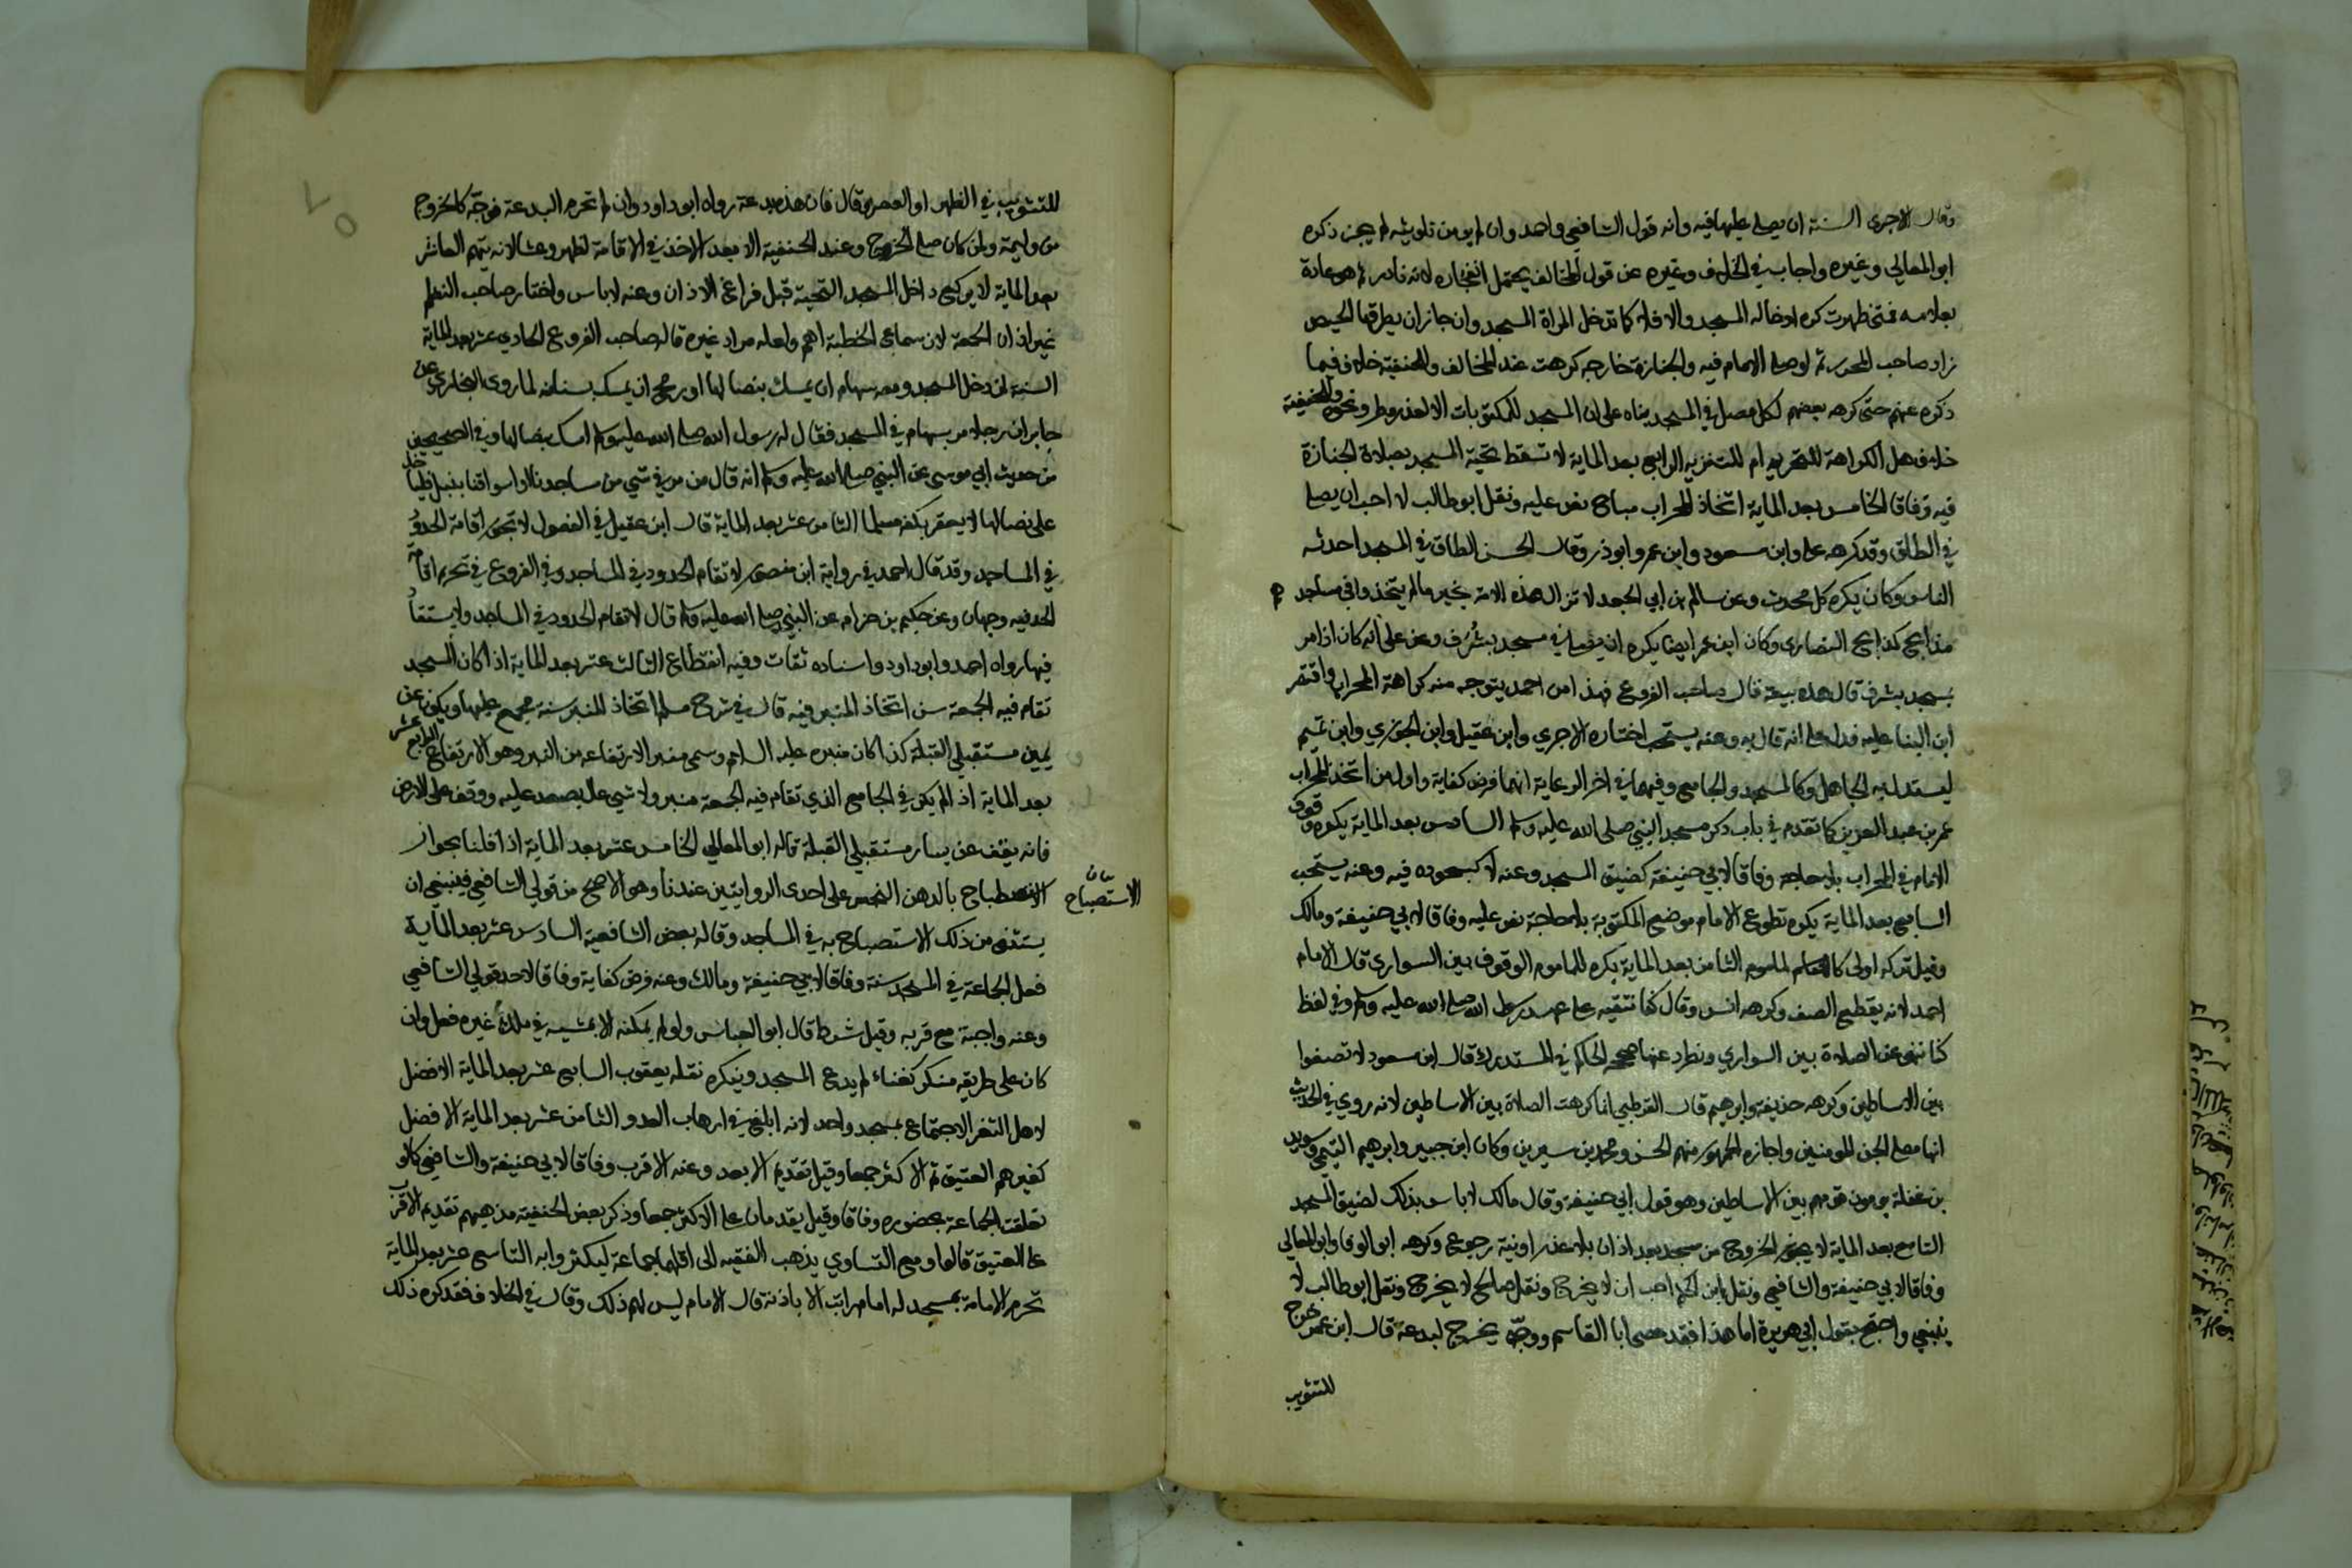 وقال الاجري السنة ان يصلي عليها فيه وانه قول الشافعي واحمد وان لم يومن تلويثه لم يجز ذكره
ابو المعالي وغيره واجاب في الخلاف وغيره عن قول المخالف يحتمل انفجاره لانه نادر ثم هو عادة
بعلامة فمتى ظهرت كره ادخاله المسجد والا فلا كما تدخل المراة المسجد وان جاز ان يطرقها الحيض
زاد صاحب المحرر ثم لو صلى الامام فيه والجنازة خارجه كرهت عند المخالف وللحنفية خلاف فيما
ذكره عنهم حتى كرهه بعضهم لكل مصل في المسجد بناء على ان المسجد للمكتوبات الا لعذر مطر ونحوه وللحنفية
خلاف هل الكراهة للتحريم ام للتنزيه الرابع بعد الماية لا تسقط تحية المسجد بصلاة الجنازة
فيه وفاقا الخامس بعد الماية اتخاذ المحراب مباح نص عليه ونقل ابو طالب لا احب ان يصلي
في الطاق وقد كرهه علي وابن مسعود وابن عمر وابو ذر وقال الحسن الطاق في المسجد احدثه
الناس وكان يكره كل محدث وعن سالم بن ابي الجعد لا تزال هذه الامة بخير ما لم يتخذوا في مساجد هم
مذابح كمذابح النصارى وكان ابن عمر ايضا يكره ان يصلي في مسجد يشرف وعن علي انه كان اذا مر
بمسجد يشرف قال هذه بيعة قال صاحب الفروع فهذا من احمد يتوجه منه كراهة المحراب واقتصر
ابن البنا عليه فدل على انه قال به وعنه يستحب اختاره الاجري وابن عقيل وابن الجوزي وابن تميم
ليستدل به الجاهل وكالمسجد والجامع وفيهما في اخر الرعاية انهما فرض كفاية واول من اتخذ المحراب
عمر بن عبد العزيز كما تقدم في باب ذكر مسجد النبي صلى الله عليه وسلم السادس بعد الماية يكره وقوف
الامام في المحراب بلا حاجة وفاقا لابي حنيفة كضيق المسجد وعنه لا كسجوده فيه وعنه يستحب
السابع بعد الماية يكره تطوع الامام موضع المكتوبة بلا حاجة نص عليه وفاقا لابي حنيفة ومالك
وقيل تركه اولى كالماموم الثامن بعد الماية يكره للماموم الوقوف بين السواري قال الامام
احمد لانه يقطع الصف وكرهه انس وقال كنا نتقيه على عهد رسول الله صلى الله عليه وسلم وفي لفظ
كنا ننهى عن الصلاة بين السواري ونطرد عنها صححه الحاكم في المستدرك قال ابن مسعود لا تصفوا
بين الاساطين وكرهه حذيفة وابرهيم قال القرطبي انما كرهت الصلاة بين الاساطين لانه روي في الحديث
انها مصلى الجن المومنين واجازه الجمهور منهم الحسن ومحمد بن سيرين وكان ابن جبير وابرهيم التيمي وسويد
بن غفلة يومون قومهم بين الاساطين وهو قول ابي حنيفة وقال مالك لا باس بذلك لضيق المسجد
التاسع بعد الماية لا يجوز الخروج من مسجد بعد اذان بلا عذر او نية رجوع وكرهه ابو الوفا وابو المعالي
وفاقا لابي حنيفة والشافعي ونقل ابن الحكم احب ان لا يخرج ونقل صالح لا يخرج ونقل ابو طالب لا
ينبغي واحتج بقول ابي هريرة اما هذا فقد عصى ابا القاسم ووجه يخرج لبدعة قال ابن عمر خرج
للتثويب
للتثويب في الظهر او العصر وقال فان هذه بدعة رواه ابو داود وان لم تحرم البدعة فوجه كالخروج
من وليمة ولمن كان صلى الخروج وعند الحنفية الا بعد الاخذ في الاقامة لظهر وعشا لانه يتهم العاشر
بعد الماية لا يركع داخل المسجد التحية قبل فراغ الاذان وعنه لا باس واختار صاحب النظم
غير اذان الجمعة لان سماع الخطبة اهم ولعله مراد غيره قاله صاحب الفروع الحادي عشر بعد الماية
السنة لمن دخل المسجد ومعه سهام ان يمسك بنصالها او رمح ان يمسك بسنانه لما روى البخاري عن
جابر ان رجلا مر بسهام في المسجد فقال له رسول الله صلى الله عليه وسلم امسك بنصالها وفي الصحيحين
من حديث ابي موسى عن النبي صلى الله عليه وسلم انه قال من مر في شي من مساجدنا او اسواقنا بنبل فلياخذ
على نصالها لا يعقر بكفه مسلما الثاني عشر بعد الماية قال ابن عقيل في الفصول لا تجوز اقامة الحدود
في المساجد وقد قال احمد في رواية ابن منصور لا تقام الحدود في المساجد وفي الفروع في تحريم اقامة
الحد فيه وجهان وعن حكيم بن حزام عن النبي صلى الله عليه وسلم قال لا تقام الحدود في المساجد ولا يستقاد
فيها رواه احمد وابو داود واسناده ثقات وفيه انقطاع الثالث عشر بعد الماية اذا كان المسجد
تقام فيه الجمعة سن اتخاذ المنبر فيه قال في شرح مسلم اتخاذ المنبر سنة مجمع عليها ويكون عن
يمين مستقبلي القبلة كذا كان منبره عليه السلام وسمي منبرا لارتفاعه من النبر وهو الارتفاع الرابع عشر
بعد الماية اذ الم يكن في الجامع الذي تقام فيه الجمعة منبر ولا شي عال يصعد عليه ووقف على الارض
فانه يقف عن يسار مستقبلي القبلة قاله ابو المعالي الخامس عشر بعد الماية اذا قلنا بجواز
الاصطباح بالدهن النجس على احدى الروايتين عندنا وهو الاصح من قولي الشافعي فينبغي ان
بيان
الاستصباح
يستثنى من ذلك الاستصباح به في المساجد وقاله بعض الشافعية السادس عشر بعد الماية
فعل الجماعة في المسجد سنة وفاقا لابي حنيفة ومالك وعنه فرض كفاية وفاقا لاحد قولي الشافعي
وعنه واجبة مع قربه وقيل شرط قال ابو العباس ولو لم يمكنه الا بمشيه في ملك غيره فعل وان
كان على طريقه منكر كغناء لم يدع المسجد وينكره نقله يعقوب السابع عشر بعد الماية الافضل
لاهل الثغر الاجتماع بمسجد واحد لانه ابلغ في ارهاب العدو الثامن عشر بعد الماية الافضل
لغيرهم العتيق ثم الاكثر جمعا وقيل تقديم الابعد وعنه الاقرب وفاقا لابي حنيفة والشافعي كما لو
تعلقت الجماعة بحضوره وفاقا وقيل يقدمان على الاكثر جمعا وذكر بعض الحنفية مذهبهم تقديم الاقرب
على العتيق قالوا ومع التساوي يذهب الفقيه الى اقلهما جماعة ليكثروا به التاسع عشر بعد الماية
تحرم الامامة بمسجد له امام راتب الا باذنه قال الامام ليس لهم ذلك وقال في الخلاف فقد كره ذلك